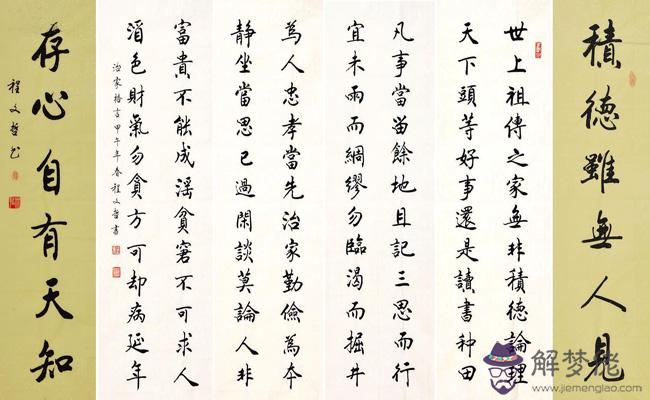 積德雖無人見
世上祖傳之家無非積德論理
天下頭等好事還是讀書种田
凡事當留餘地且記三思而行
宜未雨而綢繆勿臨渴而掘井
為人忠孝當先治家勤儉為本
靜坐當思己過閑談莫論人非
富貴不能成淫貧窘不可求人
酒色財氣勿貪方可却病延年
治家格言甲午年春程文哲書
存心自有天知
程文哲书
解梦佬
www.jiemenglao.com